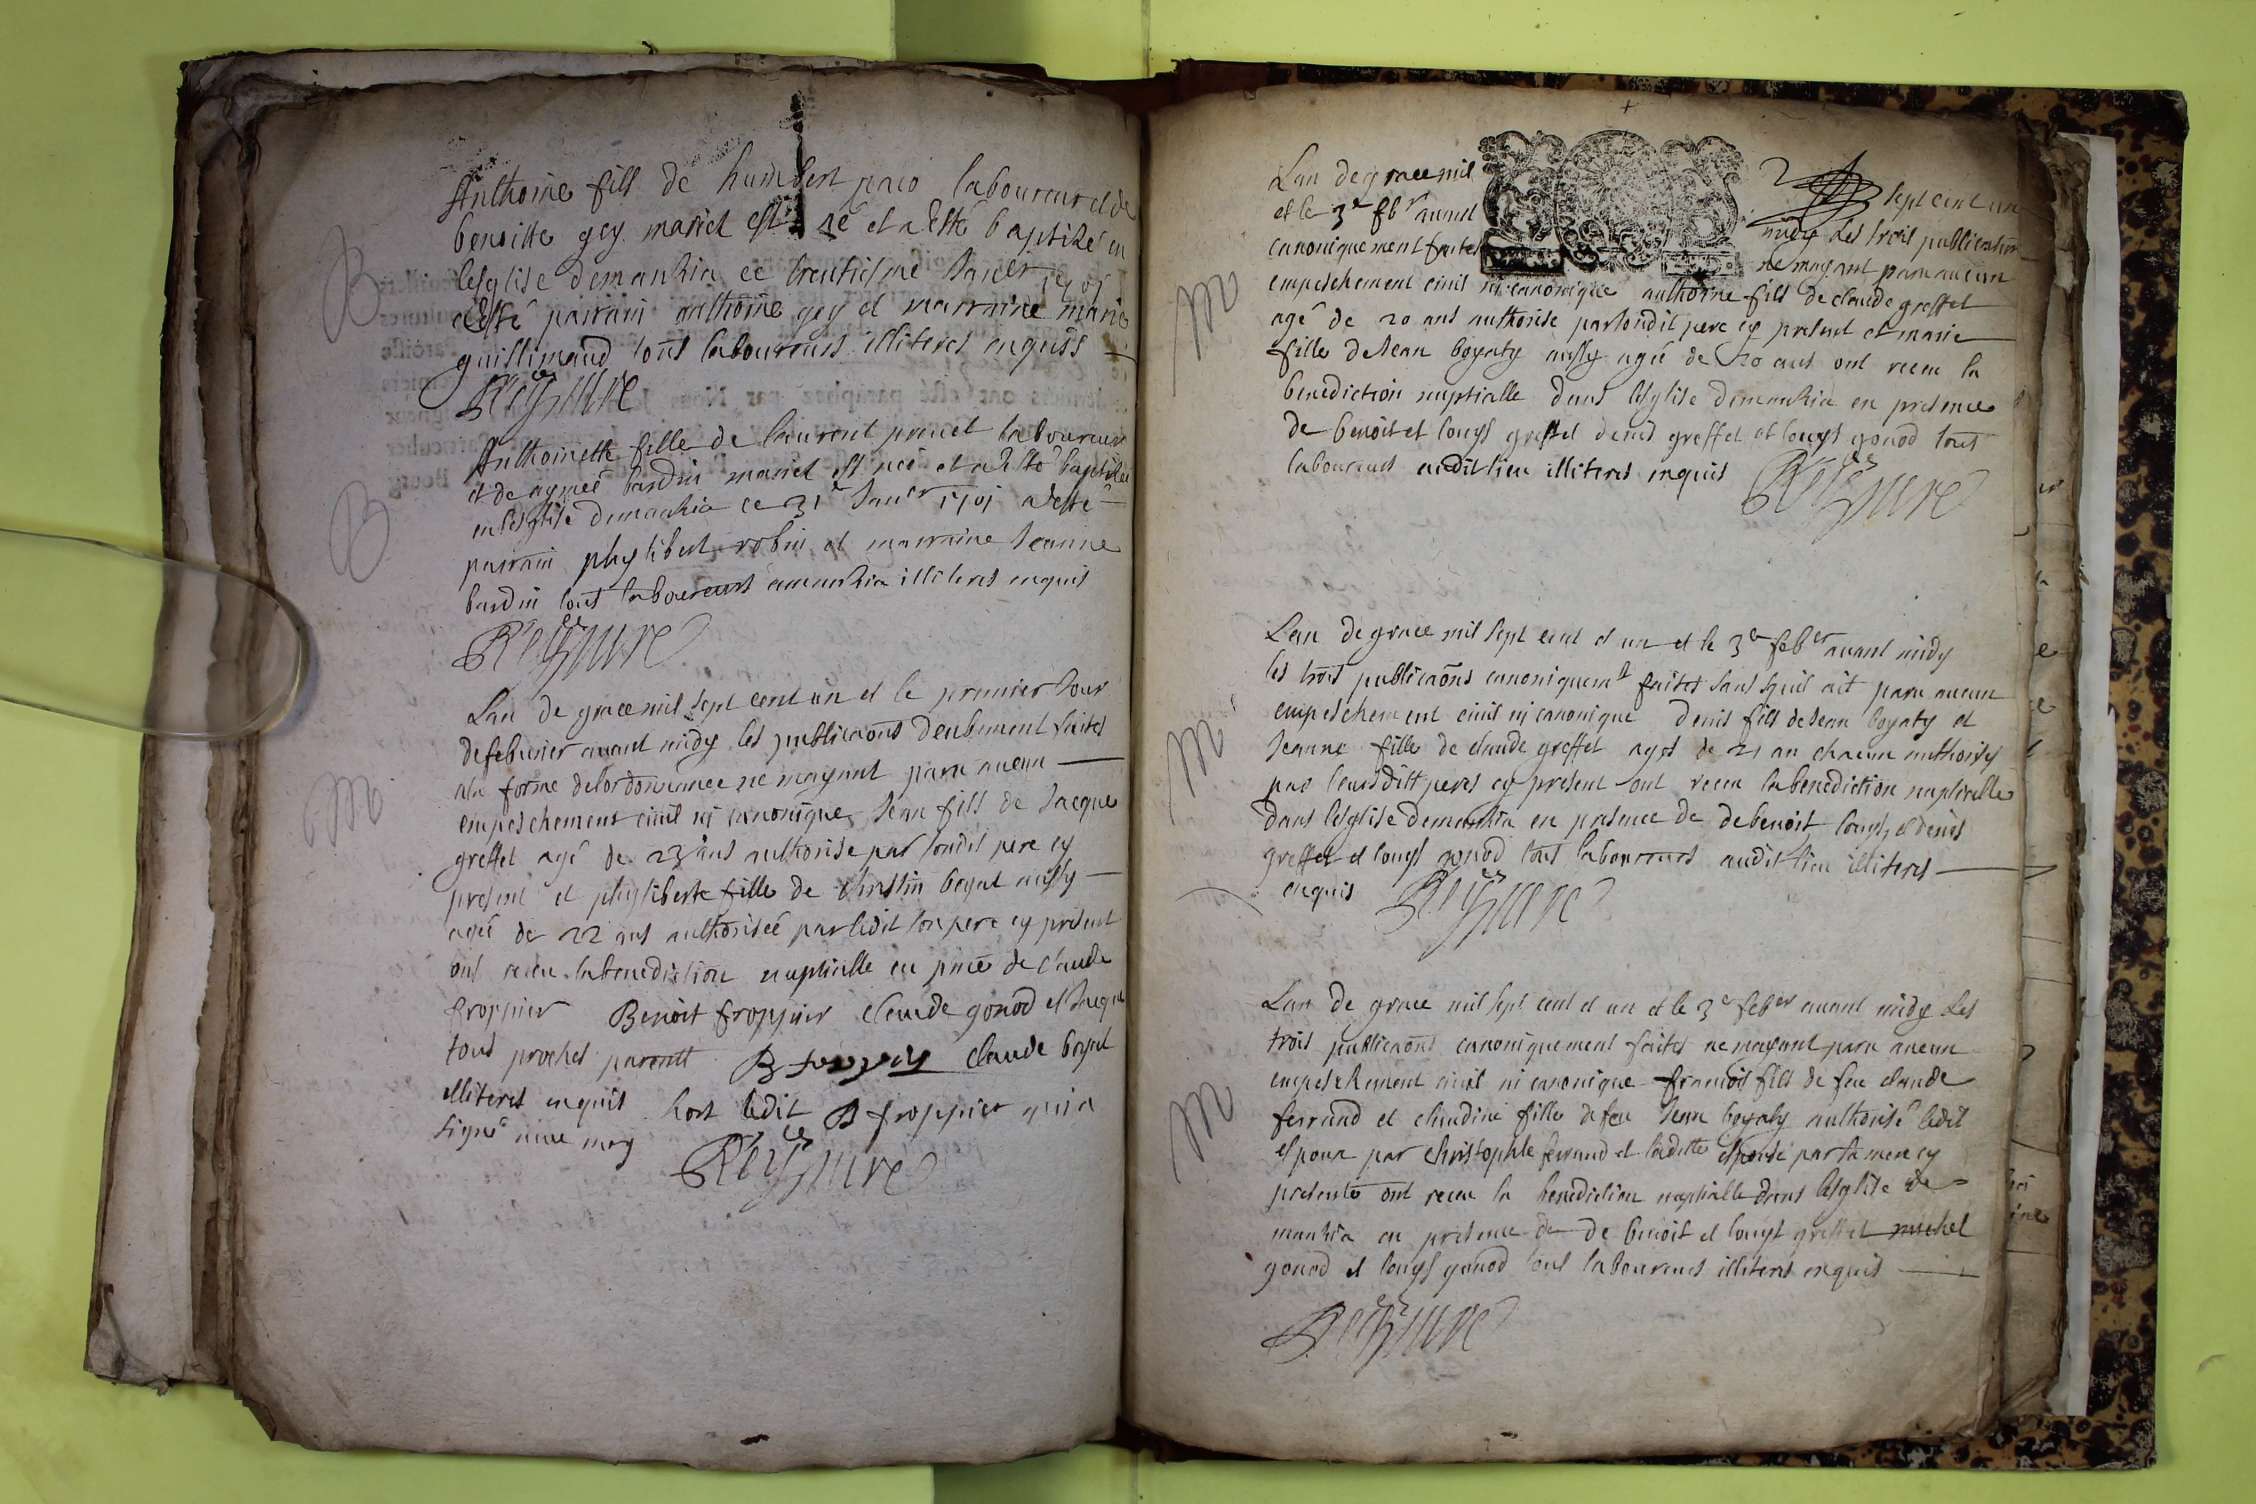 B
Anthoine fils de humbert laboureur et de
benoitte gey mariet est né et a esté baptizé en
lesglise demantzia ce trentiesme Janer 1701
a esté parrain anthoine gey et marraine marie
guillimaud tous laboureurs illiteres enquis
Reyssure
B
Anthoinette fille de laurent laboureur
et de aymeé bardin mariet est neé et a esté baptisée
en lesglise demantzia ce 31e Janer 1701 a esté
parrain phylibert robin et marraine Jeanne
bardin tous laboureurs amantzia illiteres enquis
Reyssure
M
Lan de grace mil sept cent un et le premier Jour
de febvrier avant midy les publicaons deubement faites
a la forme delordonnance ne mayant paru aucun
empeschement civil ni canonique Jean fils de Jacque
greffet agé de 23 ans authorise par sondit pere cy
present et phyliberte fille de Christin boyat aussy
ageé de 22 ans authoriseé par ledit son pere cy present
ont receu la benediction nuptialle en pnce de claude
froppier Benoit froppier claude gonod et Jacque
tous proches parentt B claude boyat
illiteres enquis hors ledit B froppier qui a
signé avec moy
Reyssure
2
M
Lan de grace mil sept cent un
et le 3e fbr avant midy Les trois publication
canoniquement faites ne mayant paru aucun
empeschement civil ni canonique anthoine fils de claude greffet
agé de 20 ans authorise par sondit pere cy present et marie
fille de Jean boyaty aussy ageé de 20 ans ont receu la
benediction nuptialle dans lesglise demantzia en presence
de benoit et louys greffet denis greffet et louys gonod tous
laboureurs audit lieu illiteres enquis Reyssure
M
Lan de grace mil sept cent et un et le 3e feber avant midy
les trois publicaons canoniquemt faites sans quil ait paru aucun
empeschement civil ni canonique denis fils de Jean boyaty et
Jeanne fille de claude greffet agés de 21 an chacun authorisés
par leursditt peres cy present ont receu la benediction nuptialle
dans lesglise demantzia en presence de de benoit louys et denis
greffet et louys gonod tous laboureurs audit lieu illiteres
enquis Reyssure
M
Lan de grace mil sept cent et un et le 3e feber avant midy Les
trois publicaons canoniquement faites ne mayant paru aucun
empeschement civil ni canonique francois fils de feu claude
ferrand et claudine fille de feu Jean boyaty authorisé ledit
espoux par christophle ferrand et ladite espouse par sa mere cy
presente ont receu la benediction nuptialle dans lesglise de
mantzia en presence de de benoit et louys greffet michel
gonod et louys gonod tous laboureurs illiteres enquis
Reyssure